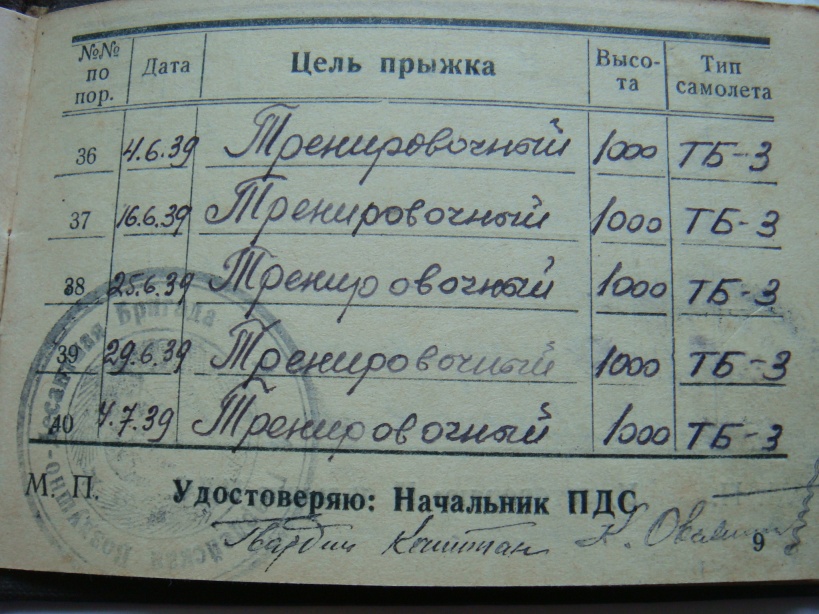 №№ по пор. Дата Цель прыжка Высо-та Тип самолета
36 4.6.39 Тренировочный 1000 ТБ-3
37 16.6.39 Тренировочный 1000 ТБ-3
38 25.6.39 Тренировочный 1000 ТБ-3
39 29.6.39 Тренировочный 1000 ТБ-3
40 4.7.39 Тренировочный 1000 ТБ-3
М. П. Удостоверяю: Начальник ПДС
Гвардии Капитан К.
9
Бригада